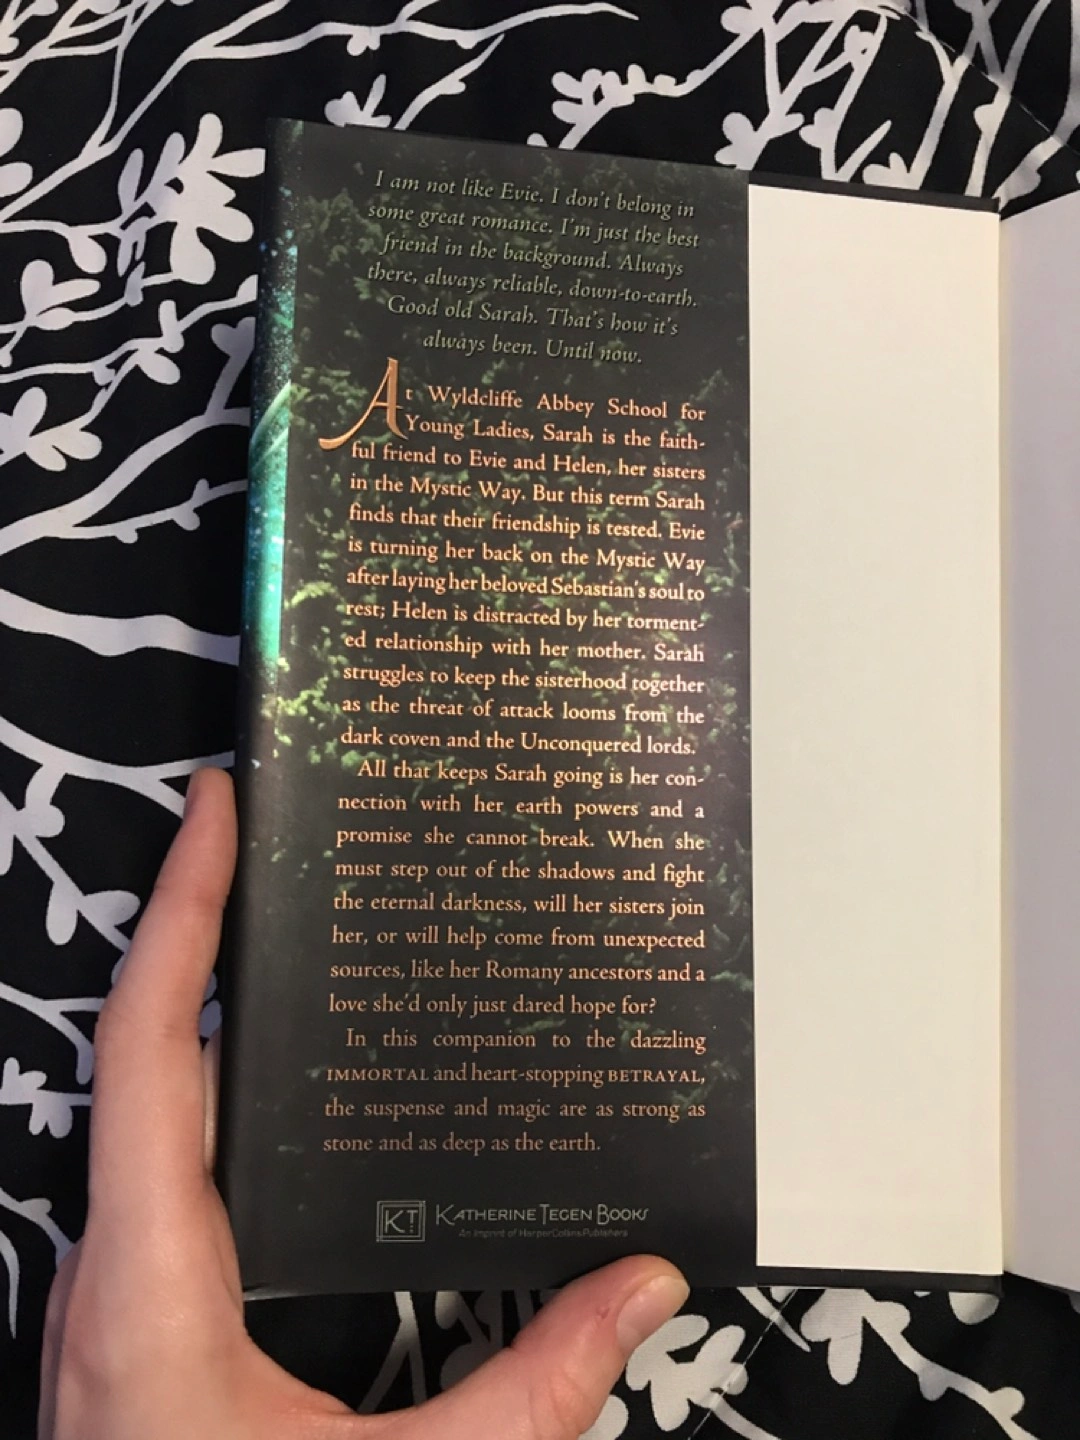 I am not like Evie. I don't belong in
some great romance. I'm just the best
friend in the background. Always
there, always reliable, down-to-earth.
Good old Sarah. That's how it's
always been. Until now.
At Wyldcliffe Abbey School for
Young Ladies, Sarah is the faith-
ful friend to Evie and Helen, her sisters
in the Mystic Way. But this term Sarah
finds that their friendship is tested. Evie
is turning her back on the Mystic Way
after laying her beloved Sebastian's soul to
rest; Helen is distracted by her torment-
ed relationship with her mother. Sarah
struggles to keep the sisterhood together
as the threat of attack looms from the
dark coven and the Unconquered lords.
All that keeps Sarah going is her con-
nection with her earth powers and a
promise she cannot break. When she
must step out of the shadows and fight
the eternal darkness, will her sisters join
her, or will help come from unexpected
sources, like her Romany ancestors and a
love she'd only just dared hope for?
In this companion to the dazzling
IMMORTAL and heart-stopping BETRAYAL,
the suspense and magic are as strong as
stone and as deep as the earth.
KT KATHERINE TEGEN BOOKS
An Imprint of HarperCollinsPublishers